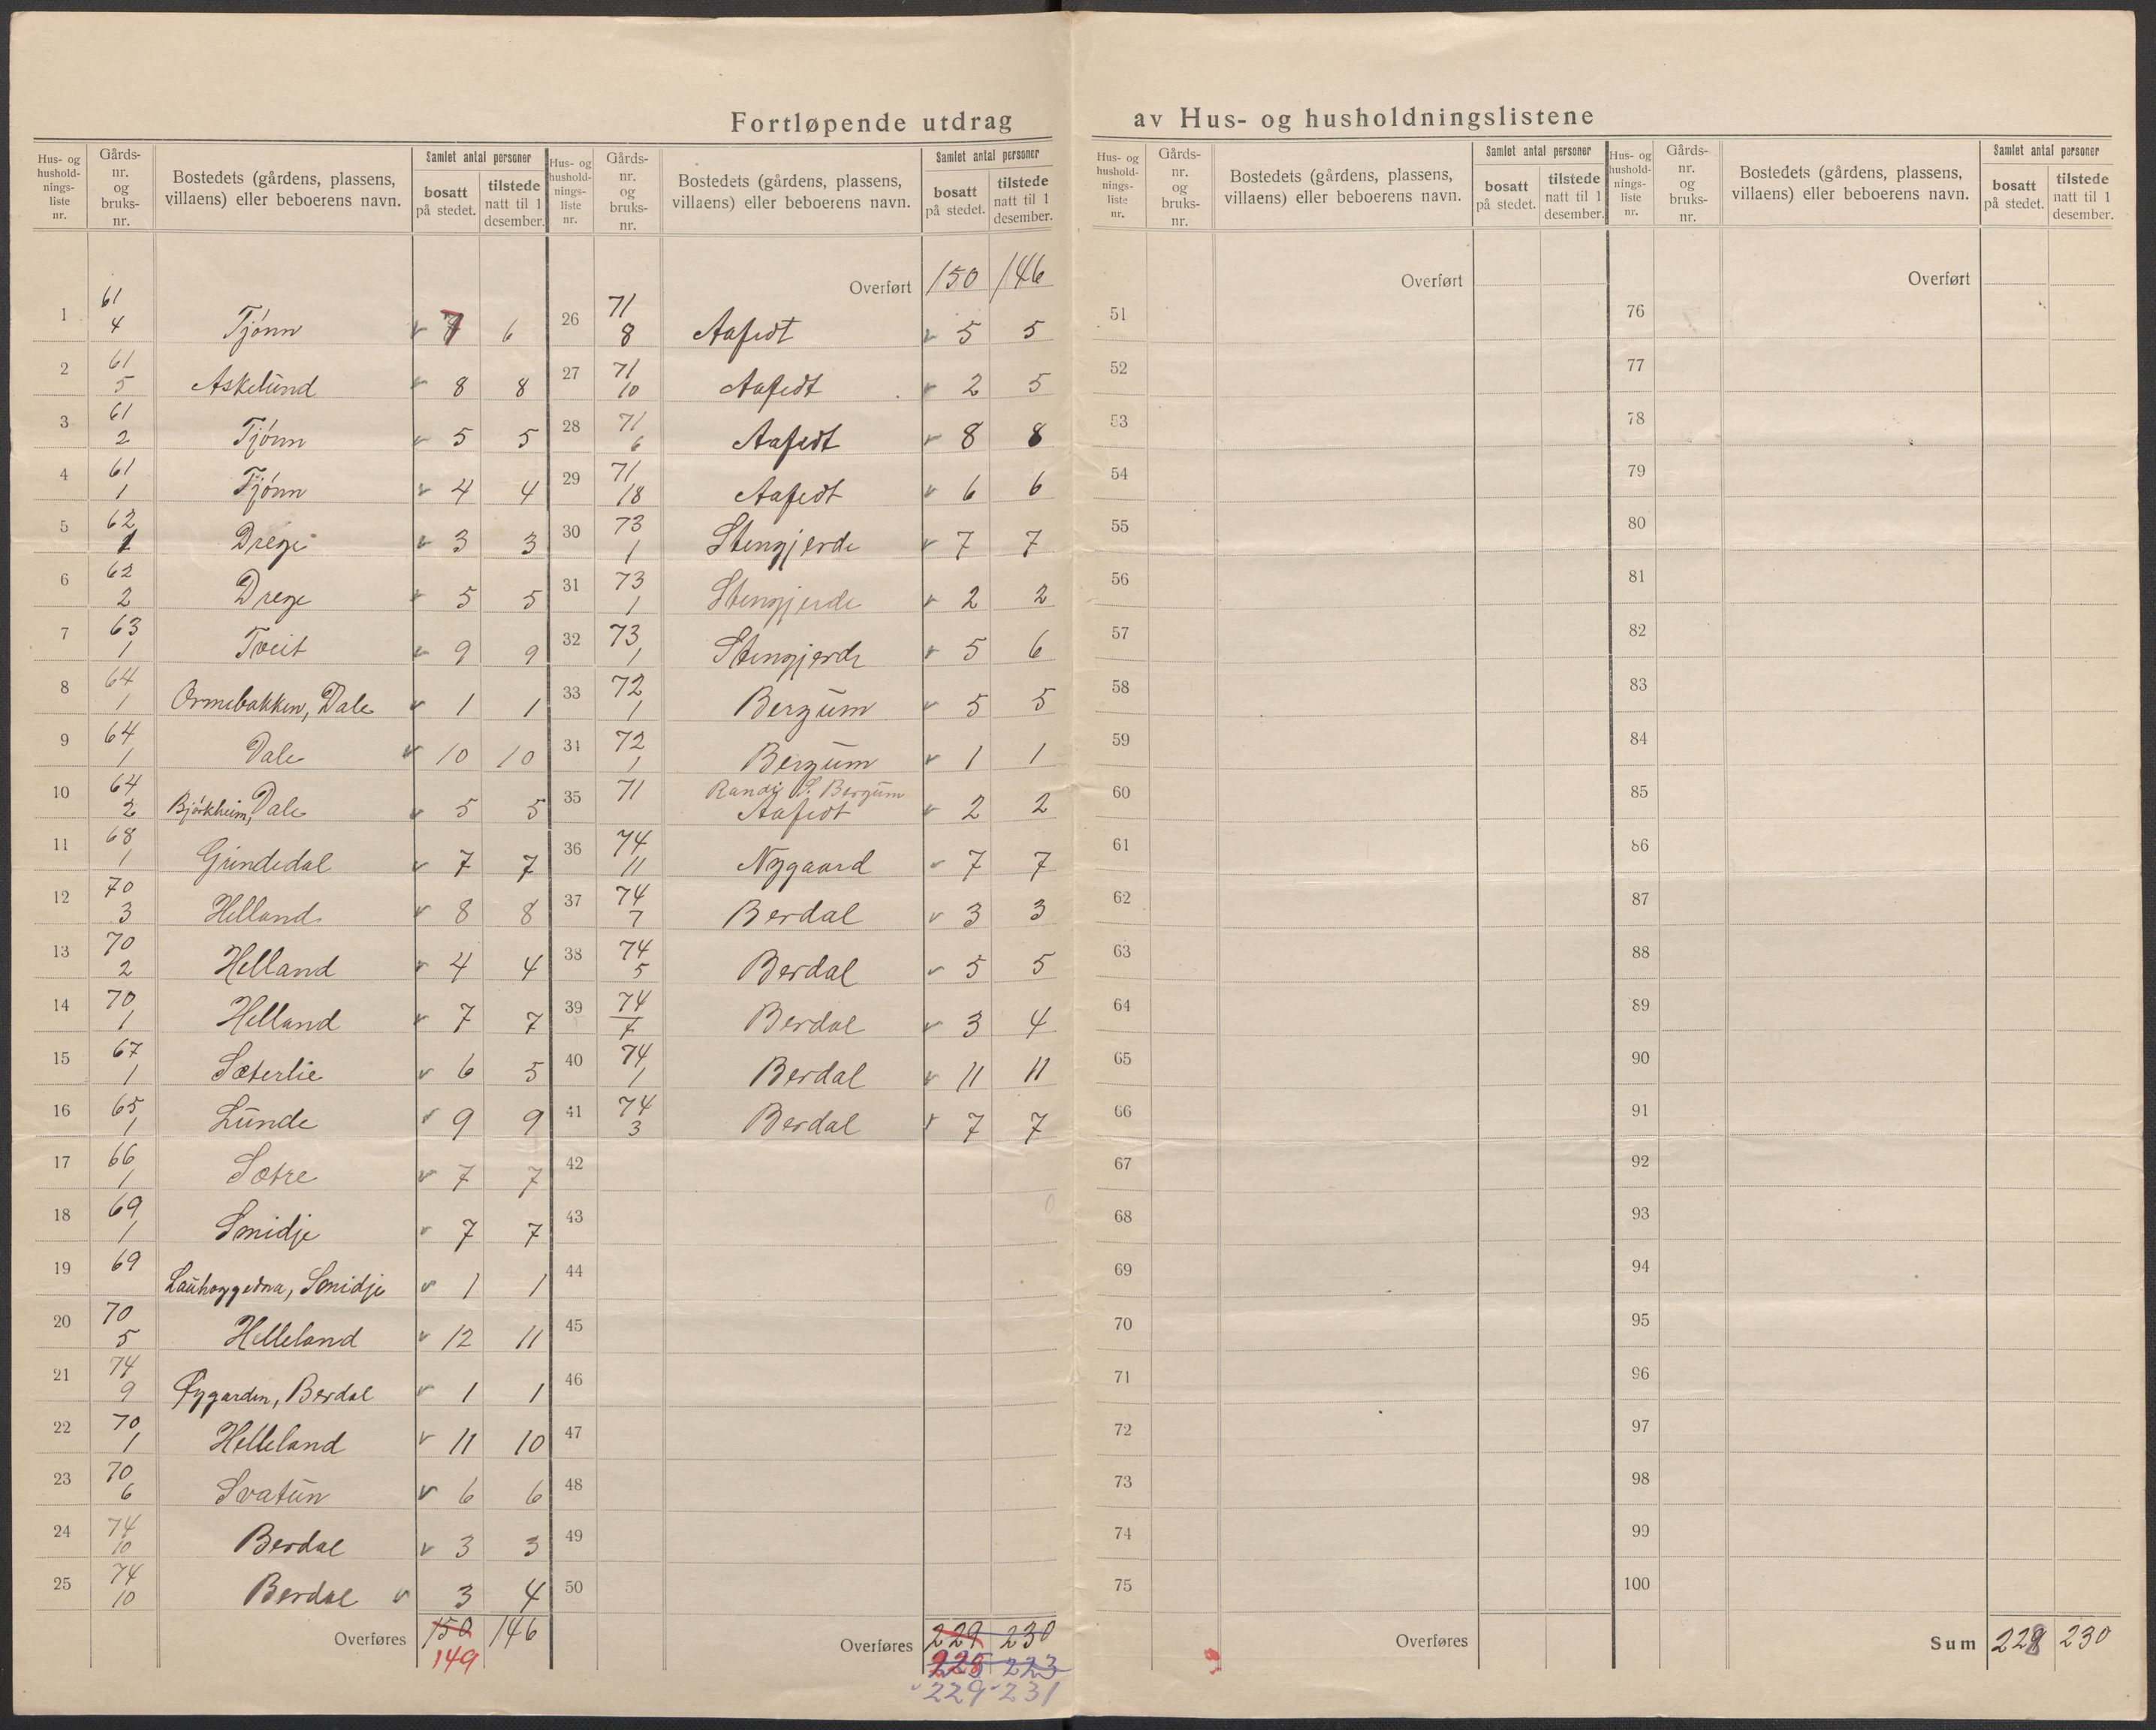 Fortløpende utdrag av Hus- og husholdningslistene
Hus- og husholdningsliste nr. Gårds-nr. og bruks-nr. Bostedets (gårdens, plassens, villaens) eller beboerens navn. Samlet antal personer bosatt på stedet. tilstede natt til 1 desember.
1 61 4 Tjønn v 7 6
2 61 5 Askelund v 8 8
3 61 2 Tjønn v 5 5
4 61 1 Tjønn v 4 4
5 62 1 Drege v 3 3
6 62 2 Drege v 5 5
7 63 1 Tveit v 9 9
8 64 1 Ormebakken, Dale v 1 1
9 64 1 Dale v 10 10
10 64 2 Bjørkheim, Dale v 5 5
11 68 1 Grindedal v 7 7
12 70 3 Helland v 8 8
13 70 2 Helland v 4 4
14 70 1 Helland v 7 7
15 67 1 Sæterlie v 6 5
16 65 1 Lunde v 9 9
17 66 1 Sætre v 7 7
18 69 1 Smidje v 7 7
19 69 Smidje v 1 1
20 70 5 Helleland v 12 11
21 74 9 Øygarden, Berdal v 1 1
22 70 1 Helleland v 11 10
23 70 6 Svatun v 6 6
24 74 10 Berdal v 3 3
25 74 10 Berdal v 3 4
Overføres 150 146
149
Hus- og husholdningsliste nr. Gårds-nr. og bruks-nr. Bostedets (gårdens, plassens, villaens) eller beboerens navn. Samlet antal personer bosatt på stedet. tilstede natt til 1 desember.
Overført 150 146
26 71 8 Aafedt v 5 5
27 71 10 Aafedt v 2 5
28 71 6 Aafedt v 8 8
29 71 18 Aafedt v 6 6
30 73 1 Stengjerde v 7 7
31 73 1 Stengjerde v 2 2
32 73 1 Stengjerde v 5 6
33 72 1 Bergum v 5 5
34 72 1 Bergum v 1 1
35 71 Randi S. Bergum
Aafedt v 2 2
36 74 11 Nygaard v 7 7
37 74 7 Berdal v 3 3
38 74 5 Berdal v 5 5
39 74 7 Berdal v 3 4
40 74 1 Berdal v 11 11
41 74 3 Berdal v 7 7
42
43
44
45
46
47
48
49
50
Overføres 229 230
228 223
229 231
Hus- og husholdningsliste nr. Gårds-nr. og bruks-nr. Bostedets (gårdens, plassens, villaens) eller beboerens navn. Samlet antal personer bosatt på stedet. tilstede natt til 1 desember.
Overført
51
52
53
54
55
56
57
58
59
60
61
62
63
64
65
66
67
68
69
70
71
72
73
74
75
Overføres
Hus- og husholdningsliste nr. Gårds-nr. og bruks-nr. Bostedets (gårdens, plassens, villaens) eller beboerens navn. Samlet antal personer bosatt på stedet. tilstede natt til 1 desember.
Overført
76
77
78
79
80
81
82
83
84
85
86
87
88
89
90
91
92
93
94
95
96
97
98
99
100
Sum 228 230